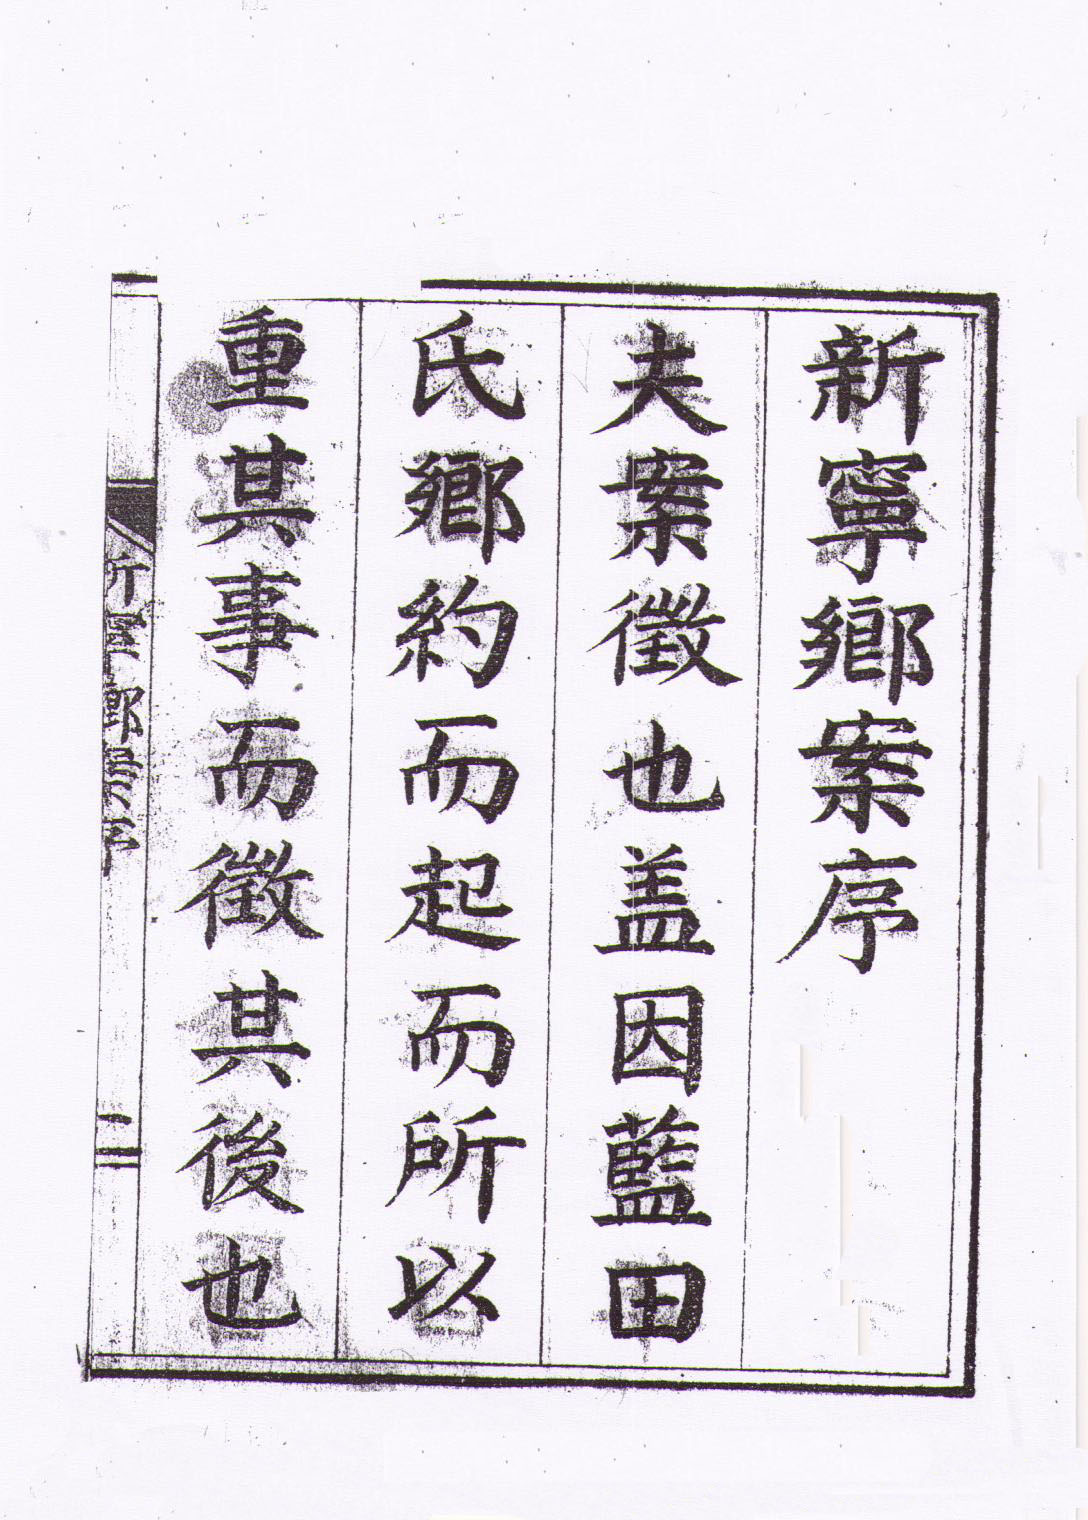 新寧鄕案序
夫案徵也盖因藍田
氏鄕約而起而所以
重其事而徵其後也
新寧鄕案序
一